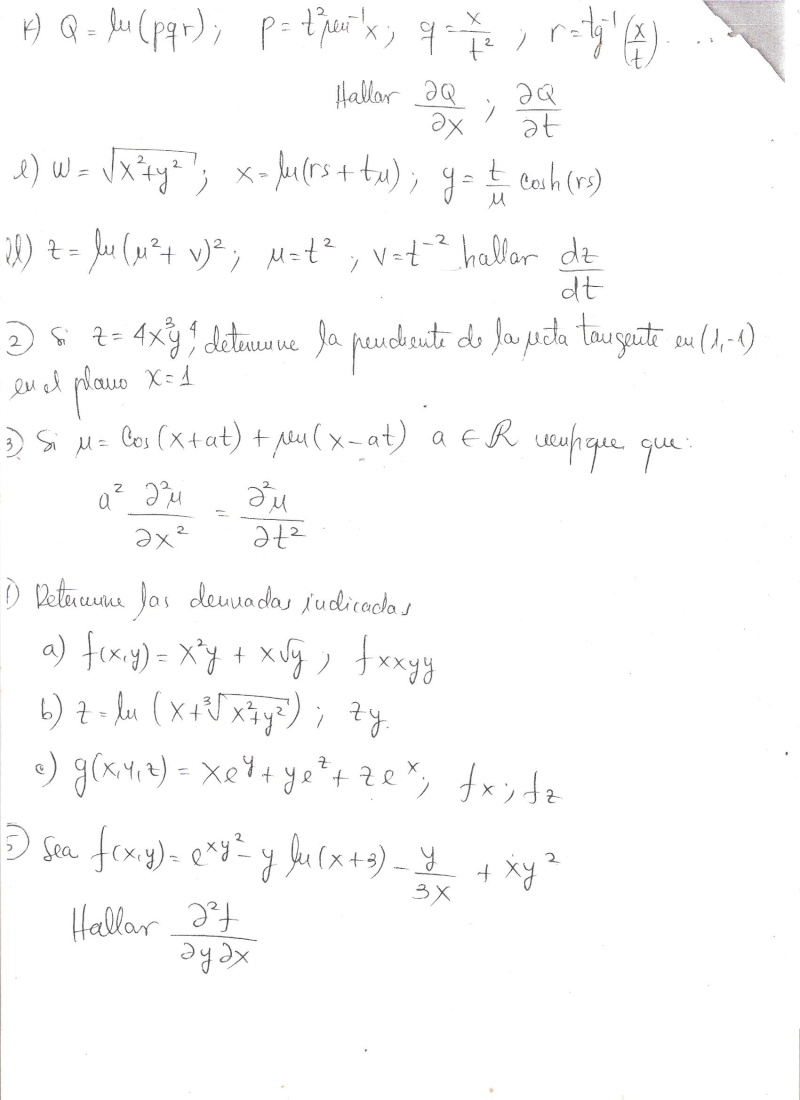 k) Q = ln(pqr); p = t² sen⁻¹x; q = x/t²; r = tg⁻¹(x/t). ...
Hallar ∂Q/∂x ; ∂Q/∂t
l) w = √(x²+y²); x = ln(rs + tμ); y = t/μ cosh(rs)
ll) z = ln(μ² + v)²; μ = t², v = t⁻² hallar dz/dt
2) Si z = 4x³y⁴, determine la pendiente de la recta tangente en (1,-1)
en el plano x = 1
3) Si μ = Cos(x+at) + sen(x-at) a ∈ R verifique que:
a² ∂²μ/∂x² = ∂²μ/∂t²
1) Determine las derivadas indicadas
a) f(x,y) = x²y + x√y ; fxxyy
b) z = ln(x + ∛(x²+y²)); zy.
c) g(x,y,z) = xe^y + ye^z + ze^x; fx; fz
5) Sea f(x,y) = e^xy² - y ln(x+3) - y/3x + xy²
Hallar ∂²f/∂y∂x